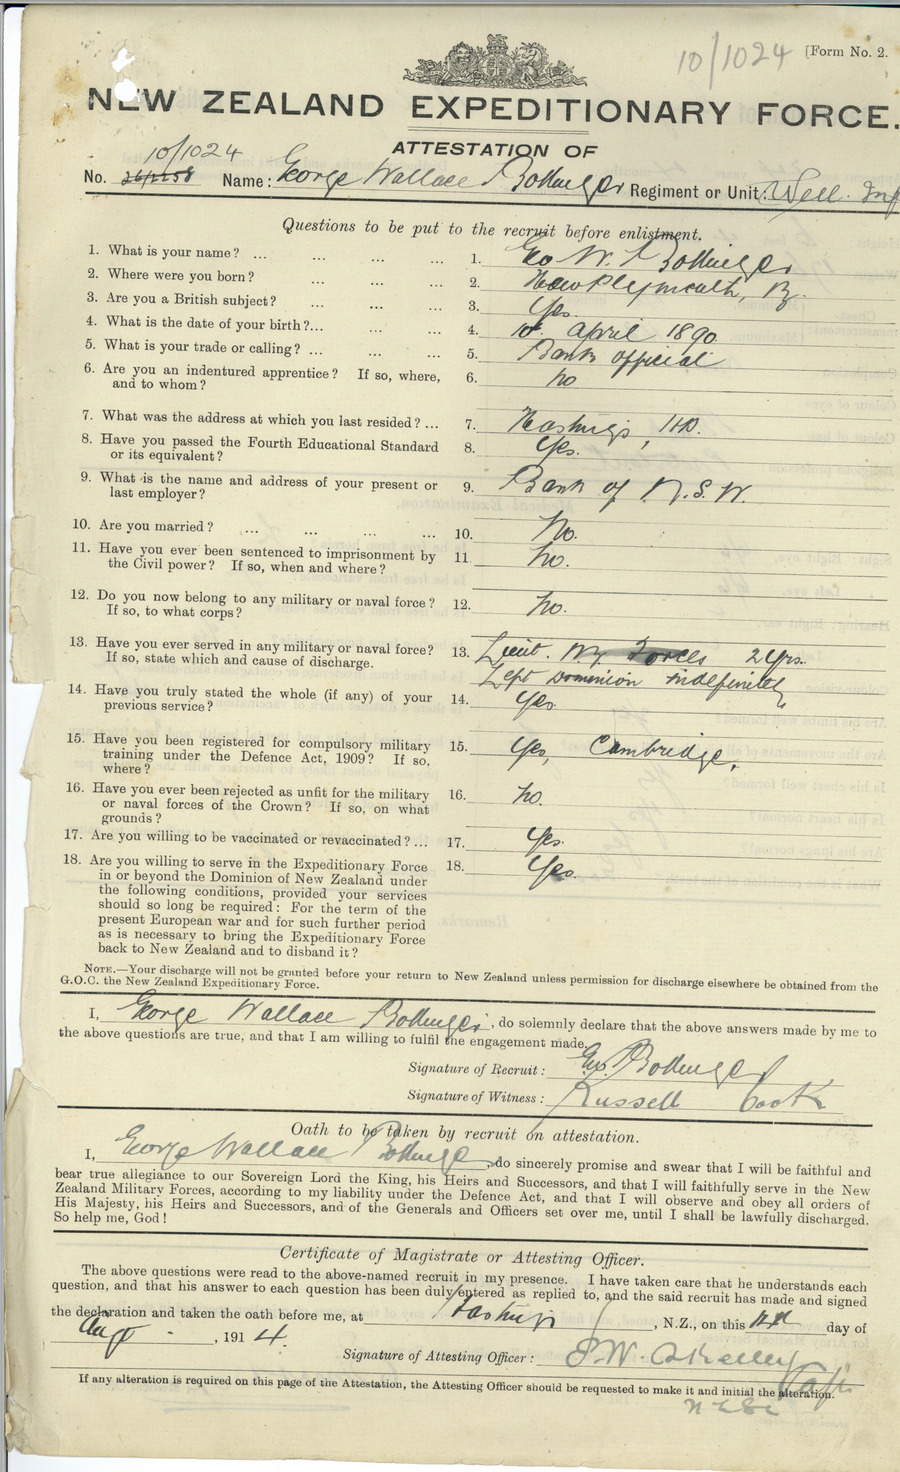 10/1024 [Form No. 2.
NEW ZEALAND EXPEDITIONARY FORCE.
ATTESTATION OF
10/1024
No. Name: George Wallace Bollinger Regiment or Unit: Well. Inf
Questions to be put to the recruit before enlistment.
1. What is your name? ... ... ... ... 1. Geo W. Bollinger
2. Where were you born? ... ... ... 2. New Plymouth, NZ.
3. Are you a British subject? ... ... ... 3. Yes.
4. What is the date of your birth?... ... ... 4. April 1890
5. What is your trade or calling? ... ... ... 5. Bank official
6. Are you an indentured apprentice? If so, where,
and to whom? 6. No
7. What was the address at which you last resided? ... 7. Hastings, HB.
8. Have you passed the Fourth Educational Standard
or its equivalent? 8. Yes.
9. What is the name and address of your present or
last employer? 9. Bank of N.S.W.
10. Are you married? ... ... ... ... 10. No.
11. Have you ever been sentenced to imprisonment by
the Civil power? If so, when and where? 11 No.
12. Do you now belong to any military or naval force?
If so, to what corps? 12. No.
13. Have you ever served in any military or naval force?
If so, state which and cause of discharge. 13. Lieut. NZ Forces 2 Yrs.
Left Dominion indefinitely
14. Have you truly stated the whole (if any) of your
previous service? 14. Yes
15. Have you been registered for compulsory military
training under the Defence Act, 1909? If so,
where? 15. Yes, Cambridge.
16. Have you ever been rejected as unfit for the military
or naval forces of the Crown? If so, on what
grounds? 16. No.
17. Are you willing to be vaccinated or revaccinated? ... 17. Yes.
18. Are you willing to serve in the Expeditionary Force
in or beyond the Dominion of New Zealand under
the following conditions, provided your services
should so long be required: For the term of the
present European war and for such further period
as is necessary to bring the Expeditionary Force
back to New Zealand and to disband it? 18. Yes.
NOTE.—Your discharge will not be granted before your return to New Zealand unless permission for discharge elsewhere be obtained from the
G.O.C. the New Zealand Expeditionary Force.
I, George Wallace Bollinger, do solemnly declare that the above answers made by me to
the above questions are true, and that I am willing to fulfil the engagement made.
Signature of Recruit: Geo. Bollinger
Signature of Witness: Russell Cook
Oath to be taken by recruit on attestation.
I, George Wallace Bollinger, do sincerely promise and swear that I will be faithful and
bear true allegiance to our Sovereign Lord the King, his Heirs and Successors, and that I will faithfully serve in the New
Zealand Military Forces, according to my liability under the Defence Act, and that I will observe and obey all orders of
His Majesty, his Heirs and Successors, and of the Generals and Officers set over me, until I shall be lawfully discharged.
So help me, God!
Certificate of Magistrate or Attesting Officer.
The above questions were read to the above-named recruit in my presence. I have taken care that he understands each
question, and that his answer to each question has been duly entered as replied to, and the said recruit has made and signed
the declaration and taken the oath before me, at Hastings, N.Z., on this day of
Augt, 1914.
Signature of Attesting Officer:
If any alteration is required on this page of the Attestation, the Attesting Officer should be requested to make it and initial the alteration.